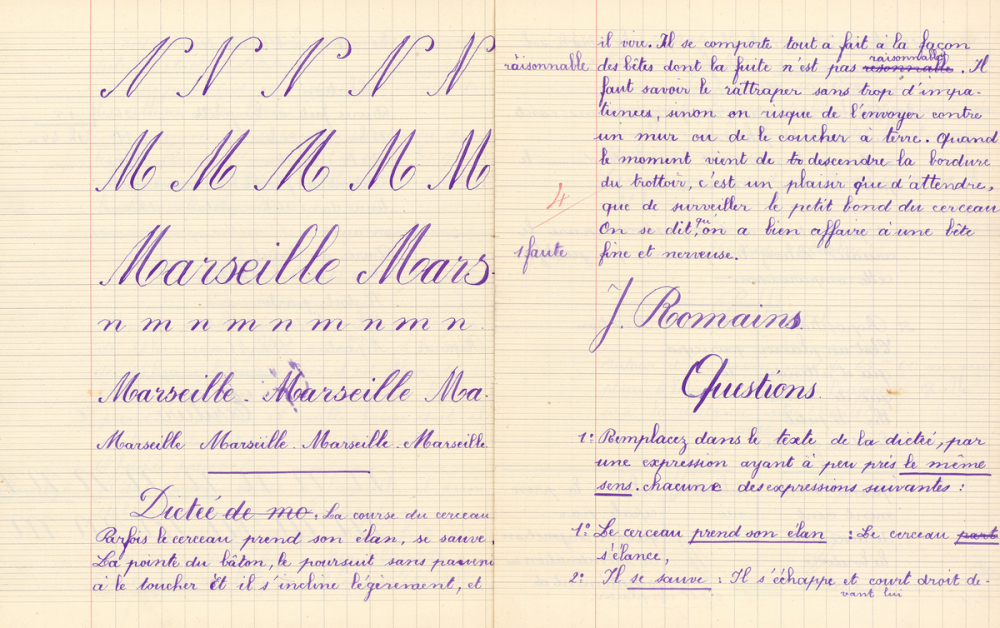 N N N N N
M M M M M
Marseille Mars.
n m n m n m n m n
Marseille. Marseille Ma.
Marseille Marseille. Marseille. Marseille.
Dictée de mo. La course du cerceau
Parfois le cerceau prend son élan, se sauve,
La pointe du bâton, le poursuit sans parveni
à le toucher Et il s'incline légèrement, et
il vire. Il se comporte tout à fait à la façon
raisonnable
des bêtes dont la fuite n'est pas resonnable raisonnable. Il
faut savoir le rattraper sans trop d'impa-
tiences, sinon on risque de l'envoyer contre
un mur ou de le coucher à terre. Quand
le moment vient de tr descendre la bordure
du trottoir, c'est un plaisir que d'attendre,
4
que de surveiller le petit bond du cerceau
On se dit, qu'on a bien affaire à une bête
1 faute
fine et nerveuse.
J. Romains.
Questions.
1: Remplacez dans le texte de la dictée, par
une expression ayant à peu près le même
sens. chacune des expressions suivantes :
1: Le cerceau prend son élan : Le cerceau part
s'élance,
2: Il se sauve : Il s'échappe et court droit de-
vant lui